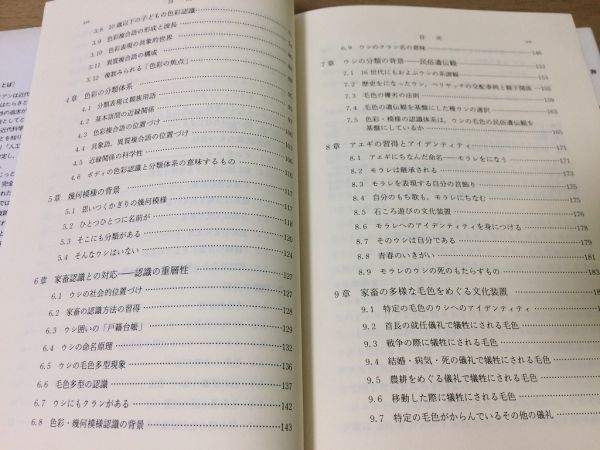 目
3.8 10歳以下の子どもの色彩認識
3.9 色彩複合語の形成と波長
3.10 色彩表現の具象的世界
3.11 異質複合語の構成
3.12 複数みられる「色彩の焦点」
4章 色彩の分類体系
4.1 分類表現は類族用語
4.2 基本語間の近縁関係
4.3 色彩複合語の位置づけ
4.4 具象語，異質複合語の位置づけ
4.5 近縁関係の科学性
4.6 ボディの色彩認識と分類体系の意味するもの
5章 幾何模様の背景
5.1 思いつくかぎりの幾何模様 117
5.2 ひとつひとつに名前が 118
5.3 そこにも分類がある 123
5.4 そんなウシはいない 124
6章 家畜認識との対応——認識の重層性 127
6.1 ウシの社会的位置づけ 127
6.2 家畜の認識方法の習得 129
6.3 ウシ囲いの「戸籍台帳」 129
6.4 ウシの命名原理 132
6.5 ウシの毛色多型現象 136
6.6 毛色多型の認識 137
6.7 ウシにもクランがある 142
6.8 色彩・幾何模様認識の背景 143
目 次
6.9 ウシのクラン名の意味 146
7章 ウシの分類の背景——民俗遺伝観
7.1 16世代にもおよぶウシの系譜観
7.2 歴史をになったウシ，ベリヤッチの交配事例と親子関係
7.3 毛色の優劣の法則
7.4 毛色の遺伝観を基盤にした種ウシの選択
7.5 色彩・模様の認識体系は，ウシの毛色の民俗遺伝観を
基盤にしているか 165
8章 アエギの習得とアイデンティティ 171
8.1 アエギにちなんだ命名——モラレになにう 171
8.2 モラレは継承される 173
8.3 モラレを表現する自分の首飾り 175
8.4 自分のもち歌も，モラレにちなむ 175
8.5 石ころ遊びの文化装置 176
8.6 モラレへのアイデンティティを身につける 178
8.7 そのウシは自分である 181
8.8 青春のいきがい
8.9 モラレのウシの死のもたらすもの 183
9章 家畜の多様な毛色をめぐる文化装置
9.1 特定の毛色のウシへのアイデンティティ
9.2 首長の就任儀礼で犠牲にされる毛色
9.3 戦争の際に犠牲にされる毛色
9.4 結婚・病気・死の儀礼で犠牲にされる毛色
9.5 農耕をめぐる儀礼で犠牲にされる毛色
9.6 移動した際に犠牲にされる毛色
9.7 特定の毛色がからんでいるその他の儀礼